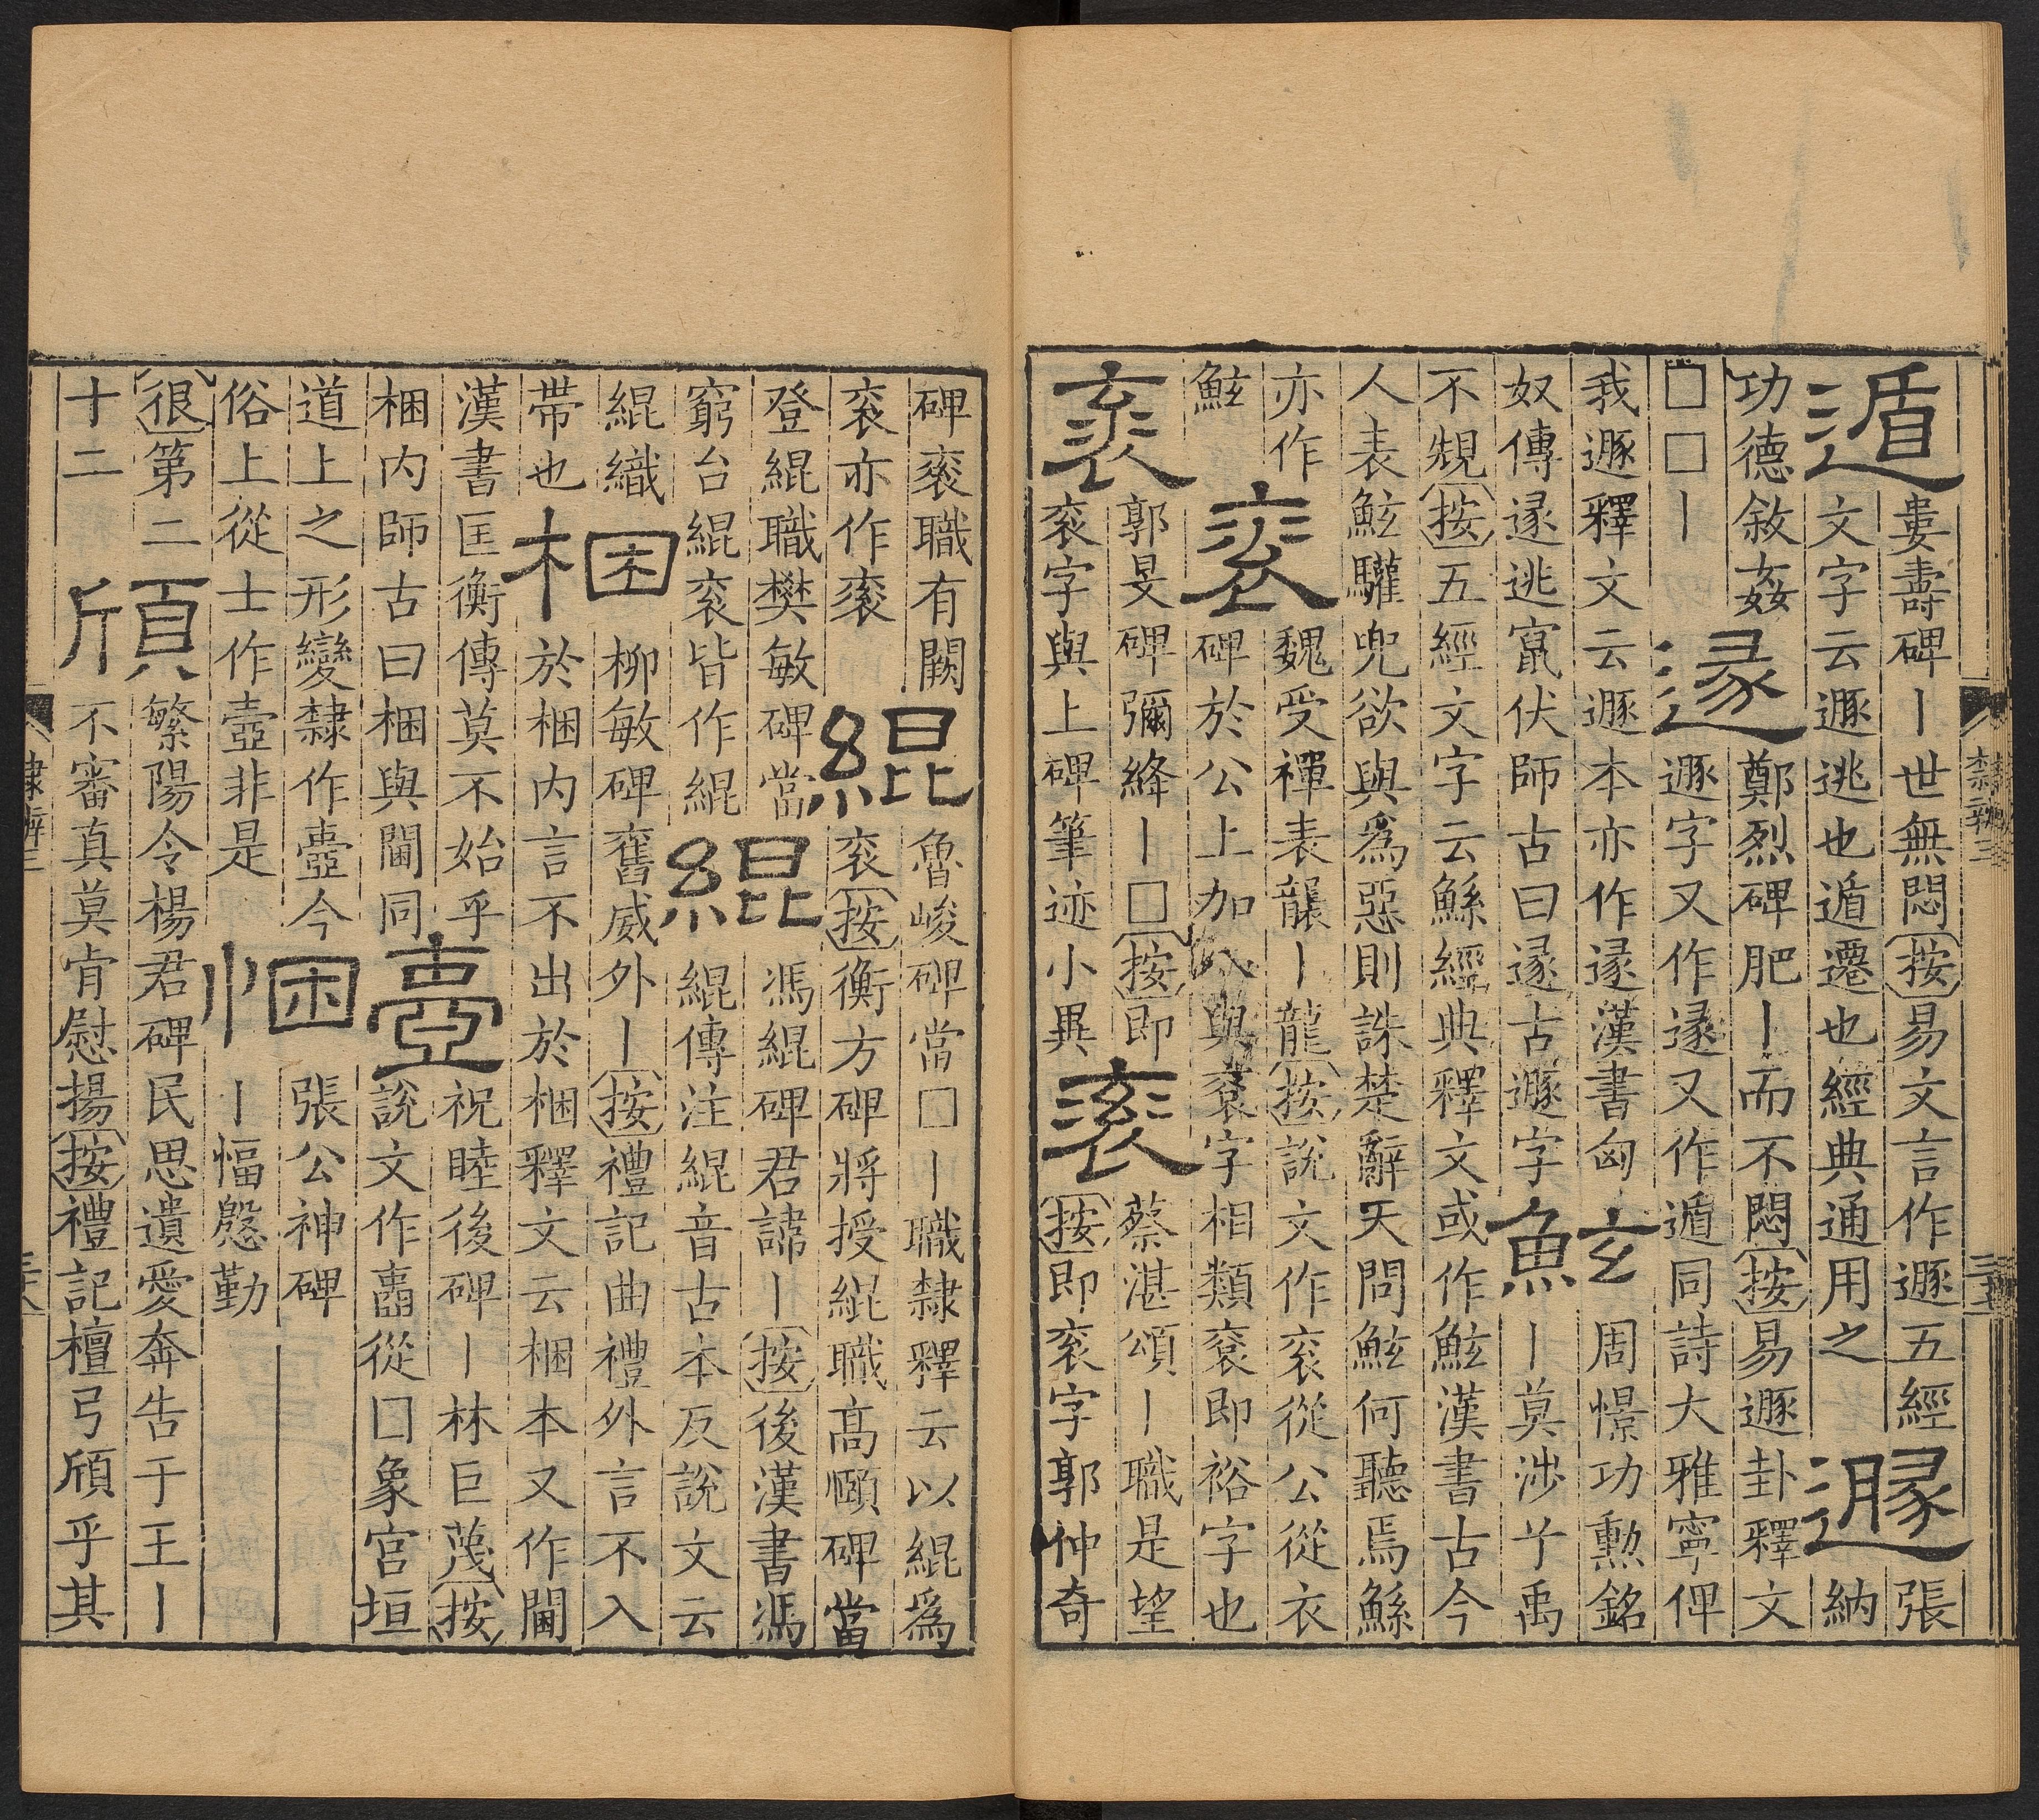 遁
婁壽碑丨世無悶按易文言作遯五經
文字云遯逃也遁遷也經典通用之
遯
張
納
功德敘姦
□□丨
逯
鄭烈碑肥丨而不悶按易遯卦釋文
遯字又作逯又作遁同詩大雅寧俾
我遯釋文云遯本亦作逯漢書匈
奴傳逯逃竄伏師古曰逯古遯字
鮌
周憬功勲銘
丨莫涉兮禹
不䂓按五經文字云鯀經典釋文或作鮌漢書古今
人表鮌驩兜欲與爲惡則誅楚辭天問鮌何聽焉鯀
亦作
鮌
袞
魏受禪表襲丨龍按說文作衮從公從衣
碑於公上加八與袞字相類袞即裕字也
衮
郭旻碑彌絳丨□按即
衮字與上碑筆迹小異
衮
蔡湛頌丨職是望
按即衮字郭仲奇
碑衮職有闕
衮亦作衮
緄
魯峻碑當□丨職隸釋云以緄爲
衮按衡方碑將授緄職高頤碑當
登緄職樊敏碑當
窮台緄衮皆作緄
緄
馮緄碑君諱丨按後漢書馮
緄傳注緄音古本反說文云
緄織
帶也
梱
柳敏碑奮威外丨按禮記曲禮外言不入
於梱内言不出於梱釋文云梱本又作閫
漢書匡衡傳莫不始乎
梱内師古曰梱與閫同
壼
祝睦後碑丨林巨蔑按
說文作壼從囗象宫垣
道上之形變隸作壼今
俗上從士作壺非是
悃
張公神碑
丨愊慇勤
很第二
十二
頎
繁陽令楊君碑民思遺愛奔告于王丨
不審真莫肯慰揚按禮記檀弓頎乎其